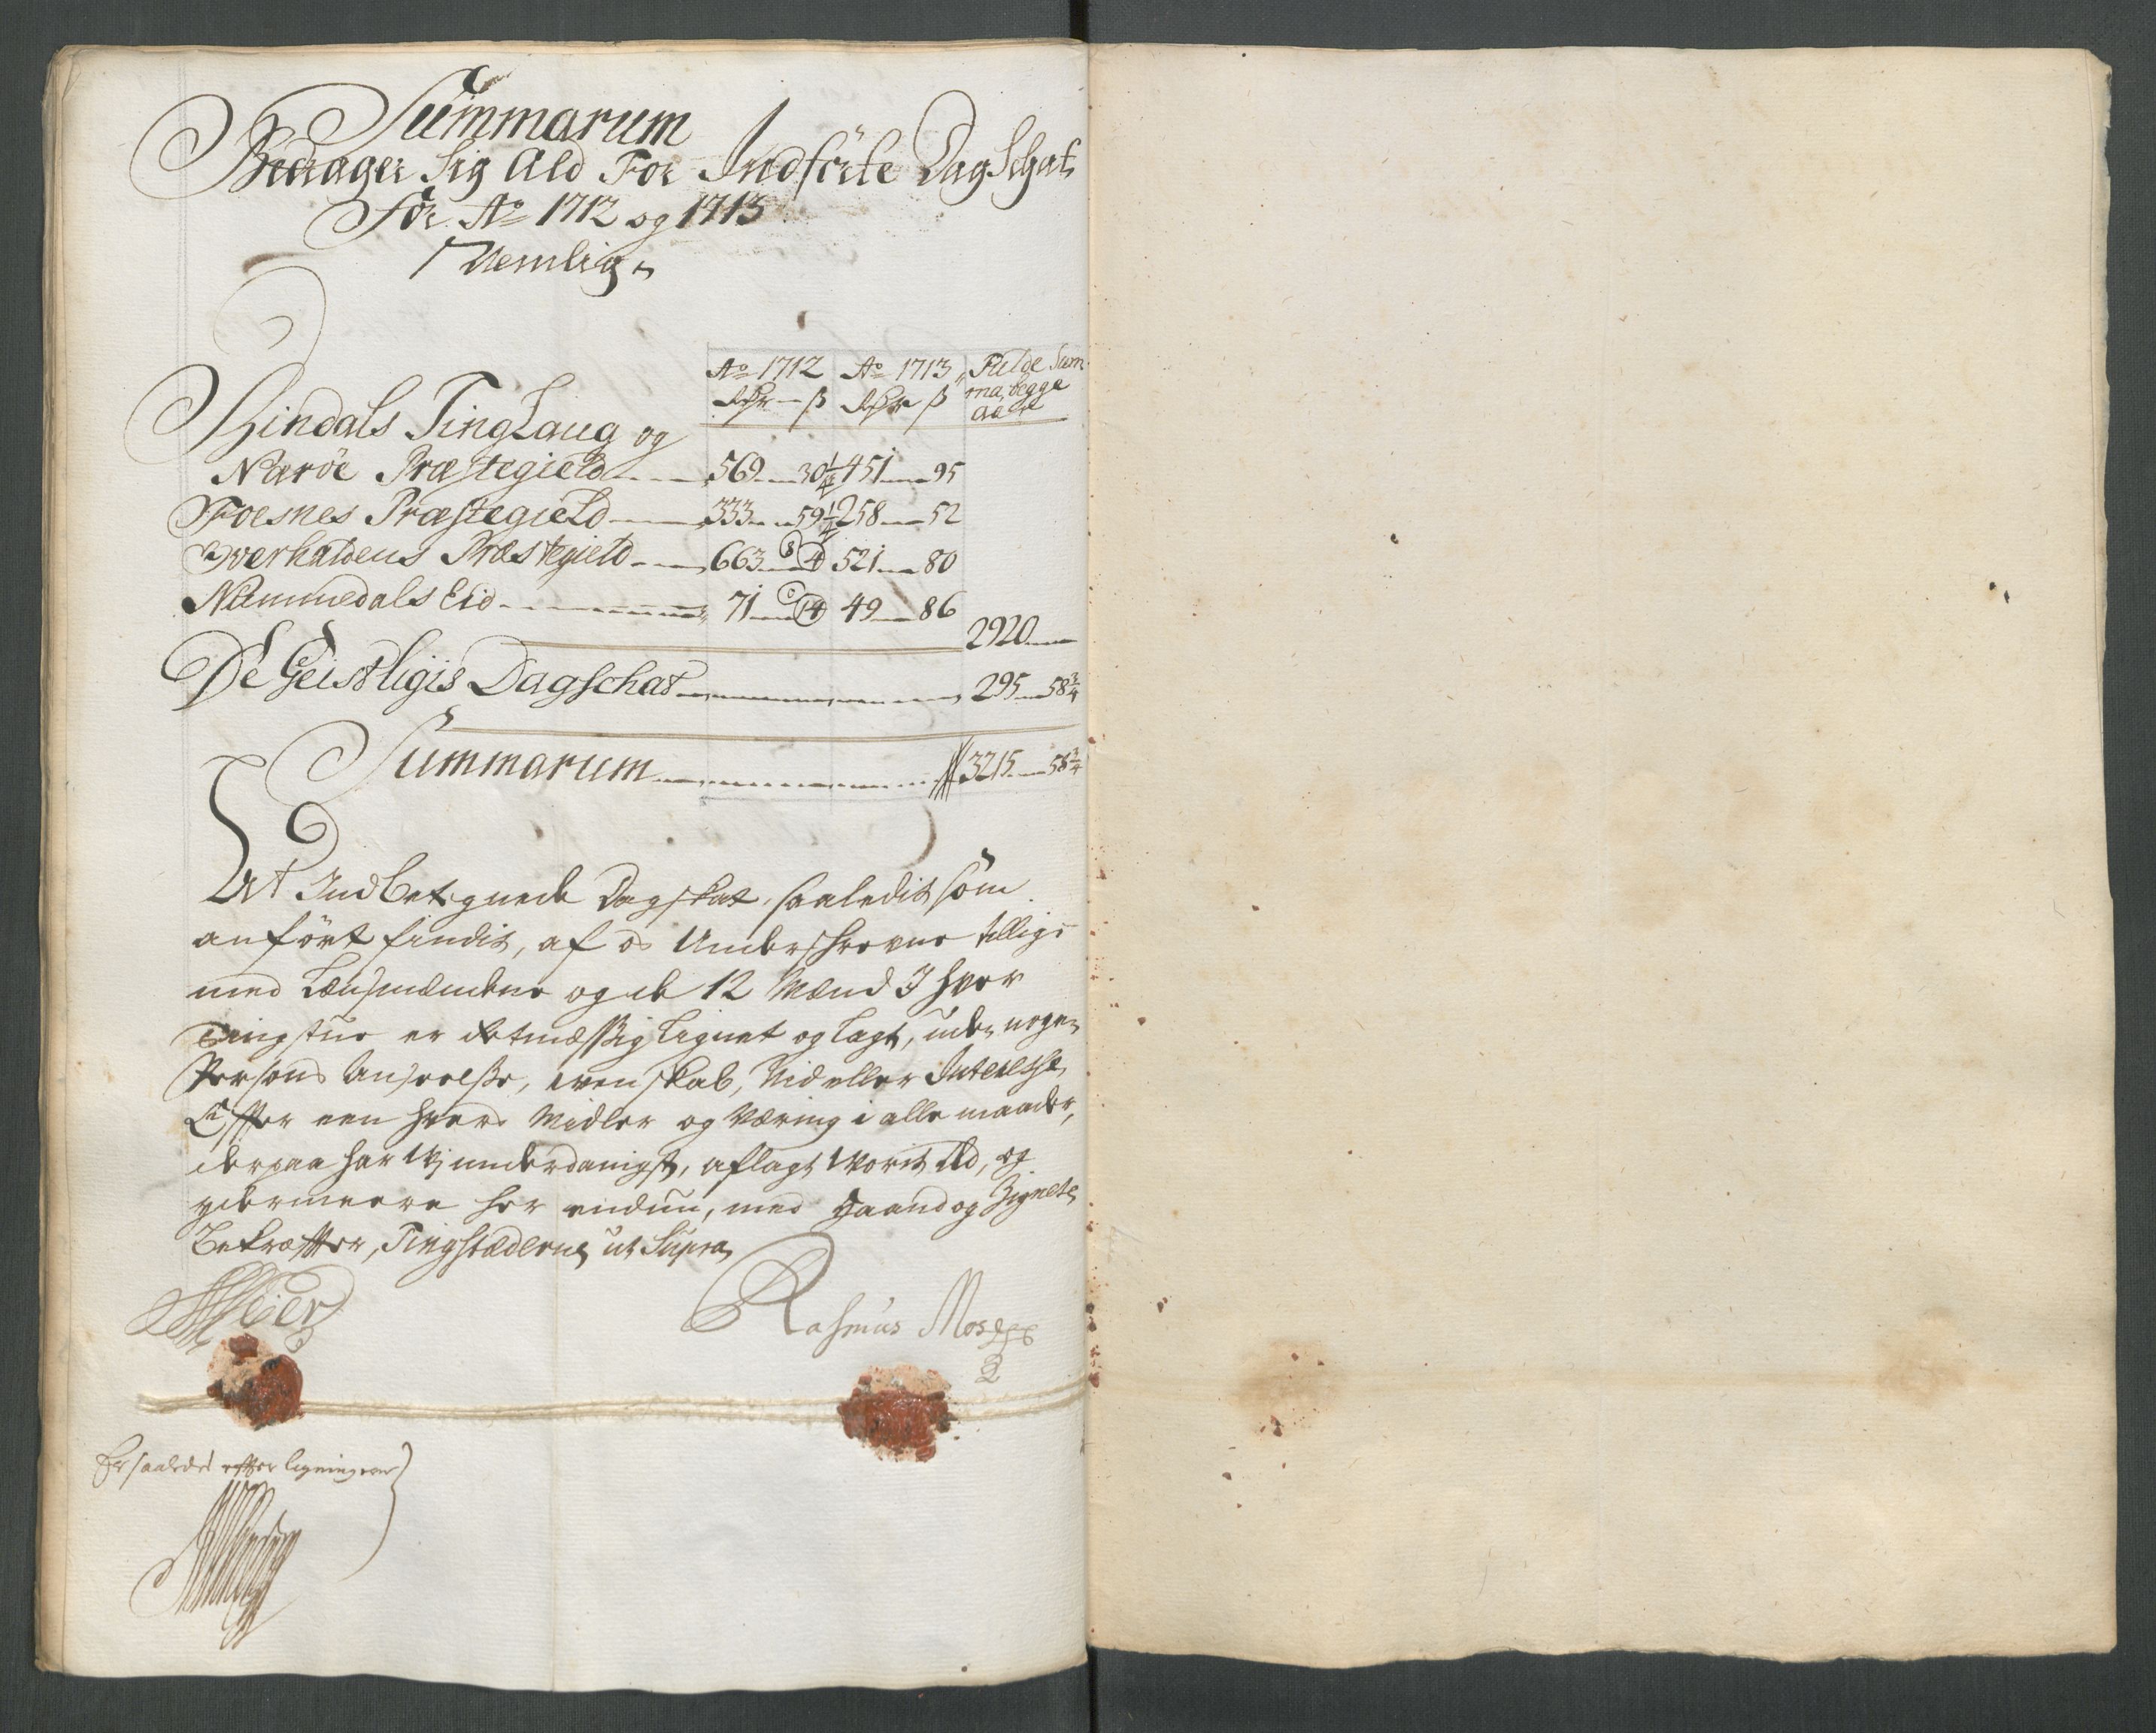 Summarum
Bedrager Sig Ald For Indförte Dag Schat
For Ao 1712 og 1713
Nemlig
Ao 1712 Ao 1713 Fulde Sum
Rdr ß Rdr ß ma begge
aar
Bindals Ting Laug og
Næröe Præstegield 569 30 1/4 451 95
Foesnes Præstegield 333 59 1/2 258 52
Overhaldens Præstegield 663 4 521 80
Nummedals Eid 71 14 49 86
2920
De Geistligis Dagschat 295 58 3/4
Summarum 3215 58 3/4
At Indbetegnede Dagskat, saaledis som
anfört findis, af os Underschrevne tillige
med Lænsmændene og de 12 Mænd I hver
Tingstue er retmæssig Lignet og lagt, uden nogen
Persons Anseelße, Wenskab, Nid eller Interesse
Effter een hvers Midler og Næring i alle maader,
derpaa har Wj underdanigst, aflagt Worit Ed, og
ydermeere her endnu, med Haand og Zignete
Bekræffter, Tingstæderne ut Supra
Rasmus Mos
Er saaledes effter ligningerne